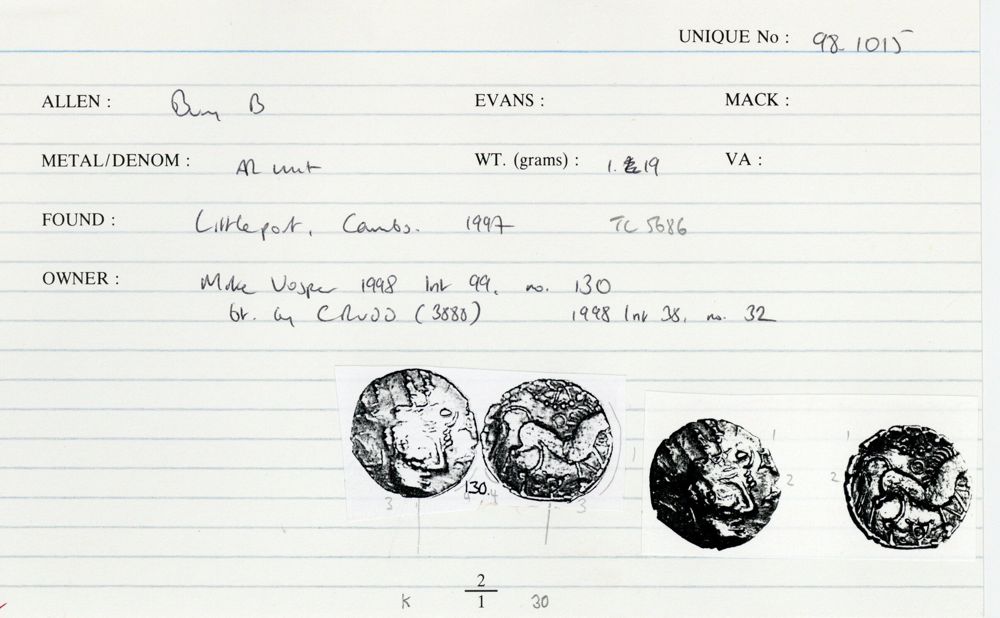 UNIQUE No : 98.1015
ALLEN : Bury B EVANS : MACK :
METAL/DENOM : AR unit WT. (grams) : 1.19 VA :
FOUND : Littleport, Cambs. 1997 TC 5686
OWNER : Mike Vosper 1998 Int 99, no. 130
bt. by CRUDD (3888) 1998 Int 38, no. 32
1 1 1
2 2
130.
3 4 4 3
2
K 1 30